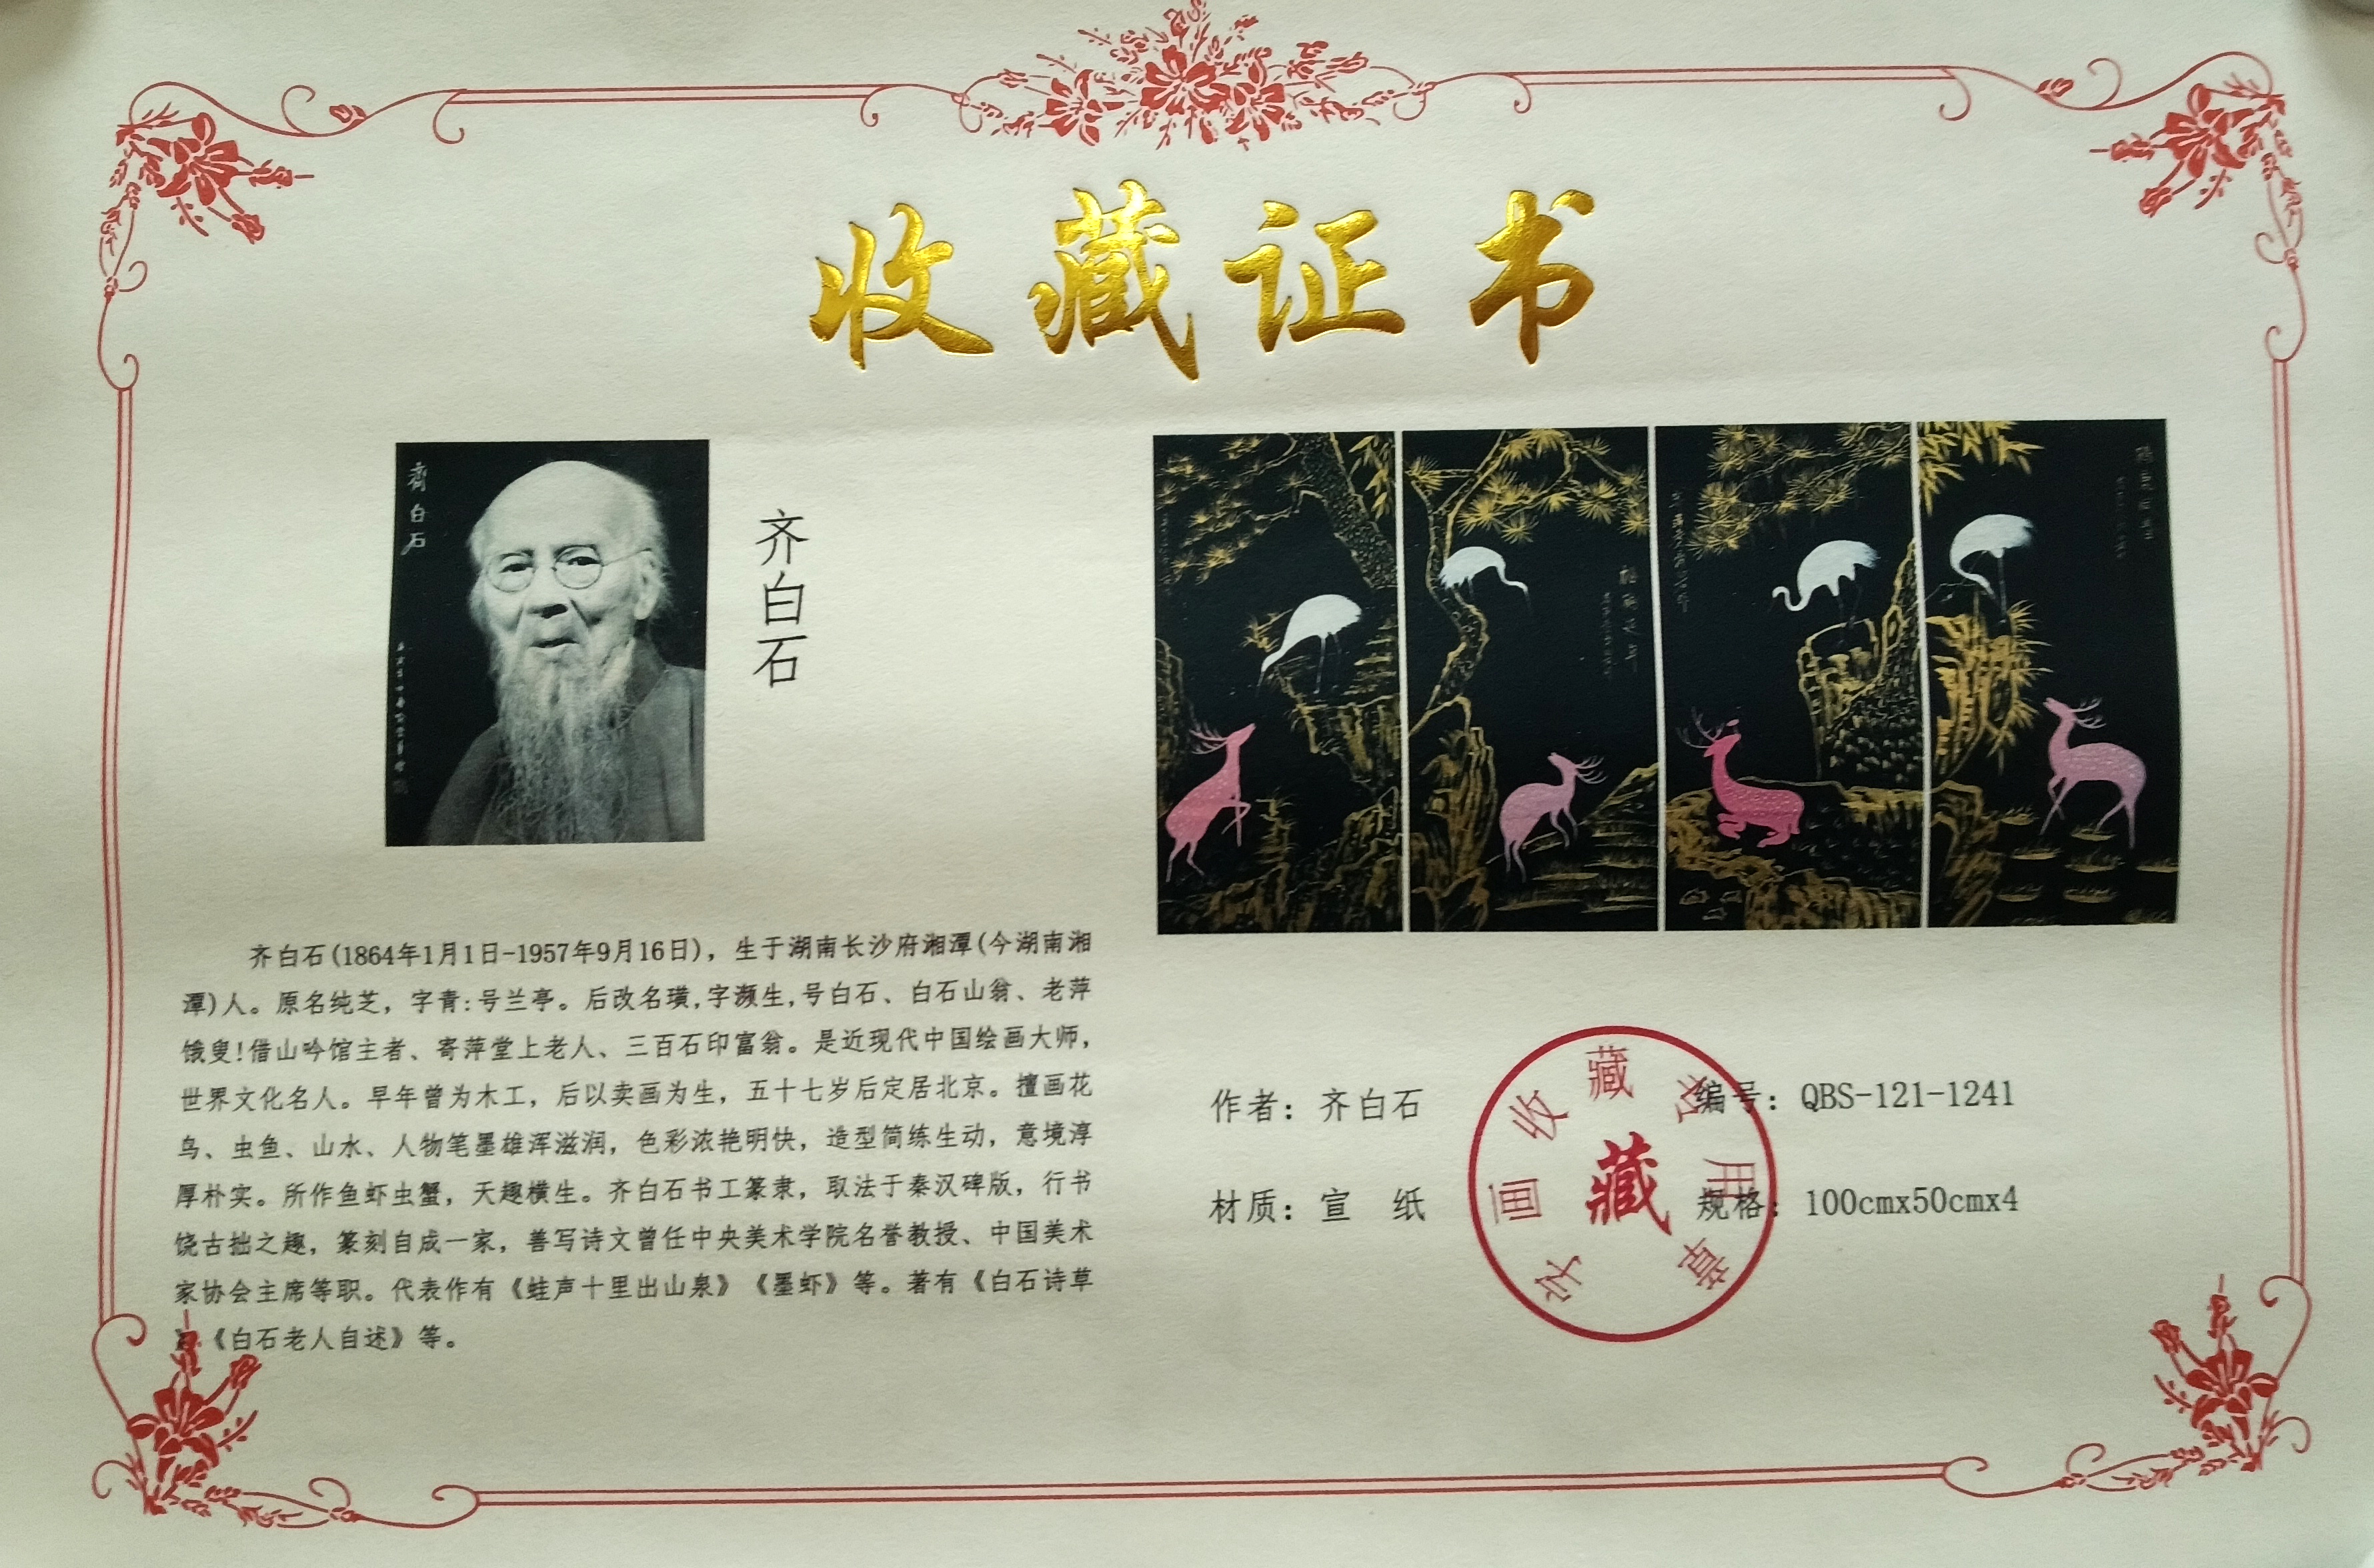 收藏证书
齐白石
齐白石
齐白石(1864年1月1日-1957年9月16日)，生于湖南长沙府湘潭(今湖南湘
潭)人。原名纯芝，字青:号兰亭。后改名璜,字濒生,号白石、白石山翁、老萍
饿叟!借山吟馆主者、寄萍堂上老人、三百石印富翁。是近现代中国绘画大师，
世界文化名人。早年曾为木工，后以卖画为生，五十七岁后定居北京。擅画花
鸟、虫鱼、山水、人物笔墨雄浑滋润，色彩浓艳明快，造型简练生动，意境淳
厚朴实。所作鱼虾虫蟹，天趣横生。齐白石书工篆隶，取法于秦汉碑版，行书
饶古拙之趣，篆刻自成一家，善写诗文曾任中央美术学院名誉教授、中国美术
家协会主席等职。代表作有《蛙声十里出山泉》《墨虾》等。著有《白石诗草
《白石老人自述》等。
作者：齐白石
编号：QBS-121-1241
材质：宣 纸
规格：100cmx50cmx4
字画收藏专用章
藏